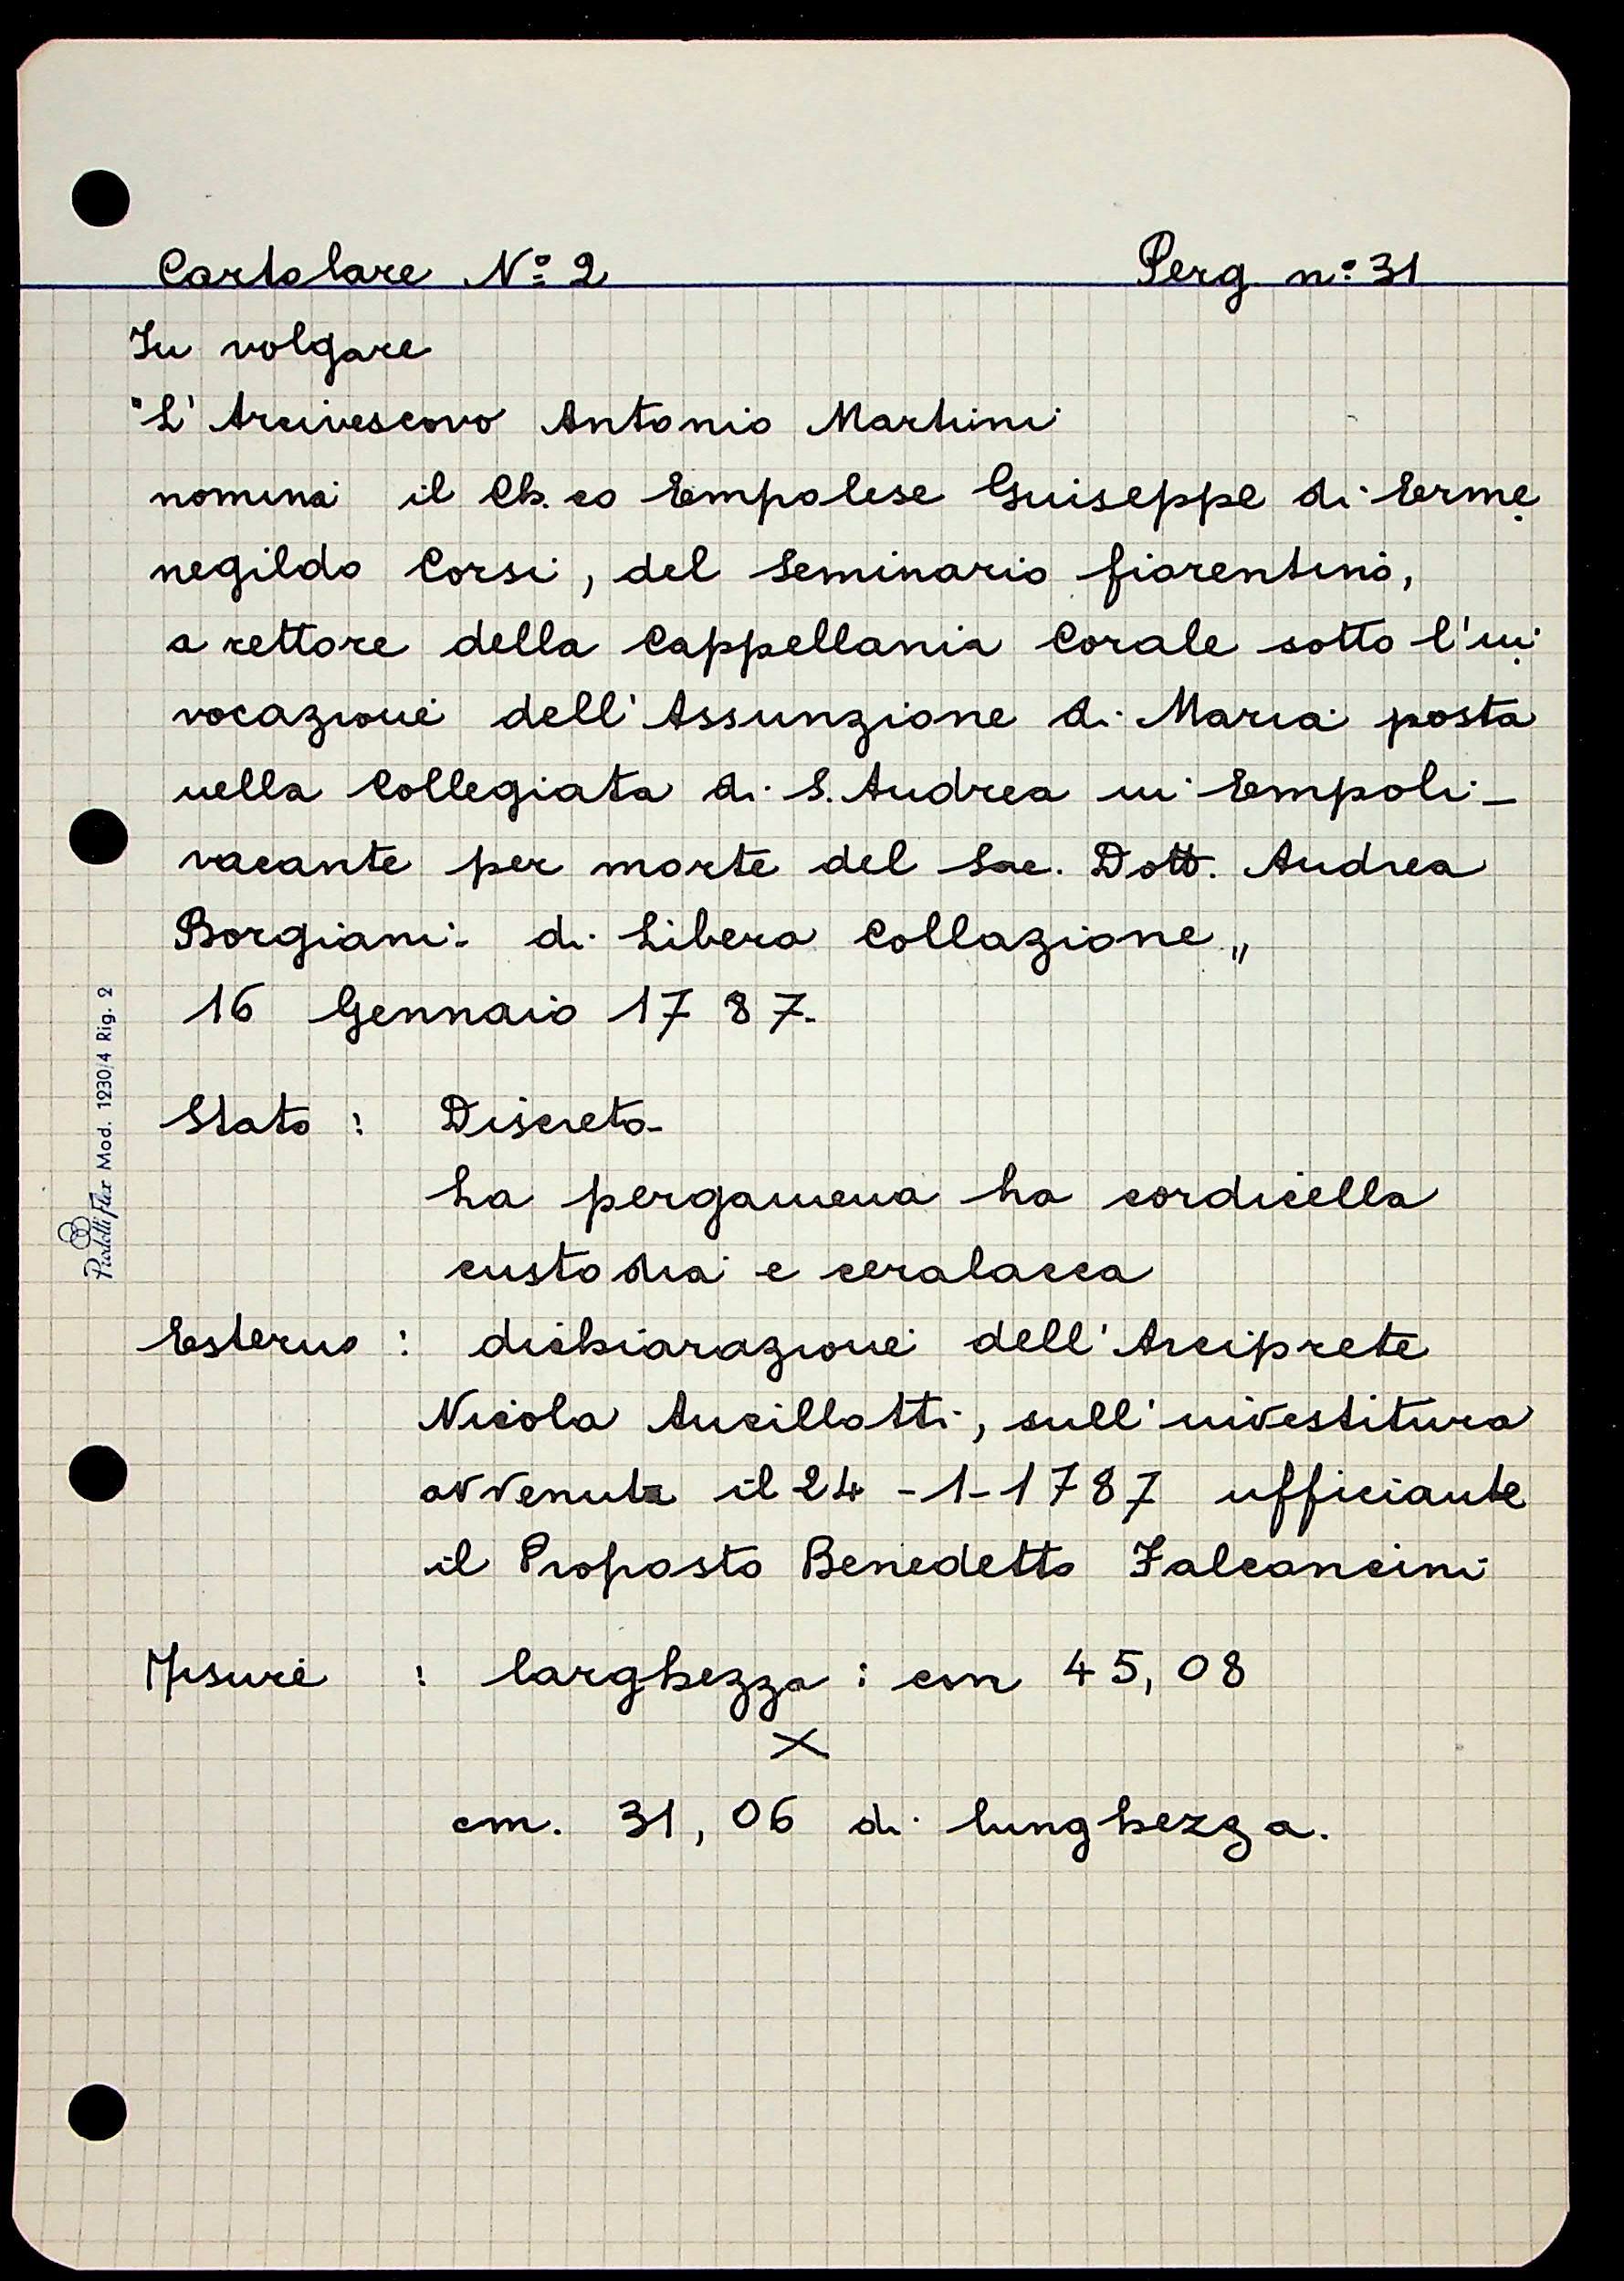 Cartolare N.º 2 Perg. n.º 31
In volgare
"L'Arcivescovo Antonio Martini
nomina il Ch.co Empolese Guiseppe di Erme
negildo Corsi, del Seminario fiorentino,
a rettore della Cappellania Corale sotto l'in
vocazione dell'Assunzione di Maria posta
nella Collegiata di S. Andrea in Empoli -
vacante per morte del Sac. Dott. Andrea
Borgiani - di Libera Collazione„
16 Gennaio 1787.
Stato : Discreto -
La pergamena ha cordicella
custodia e ceralacca
Esterno : dichiarazione dell'Arciprete
Nicola Ancillotti, sull'investitura
avvenuta il 24-1-1787 ufficiante
il Proposto Benedetto Falconcini
Misure : larghezza : cm 45,08
×
cm. 31,06 di lunghezza.
Mod. 1230/4 Rig. 2